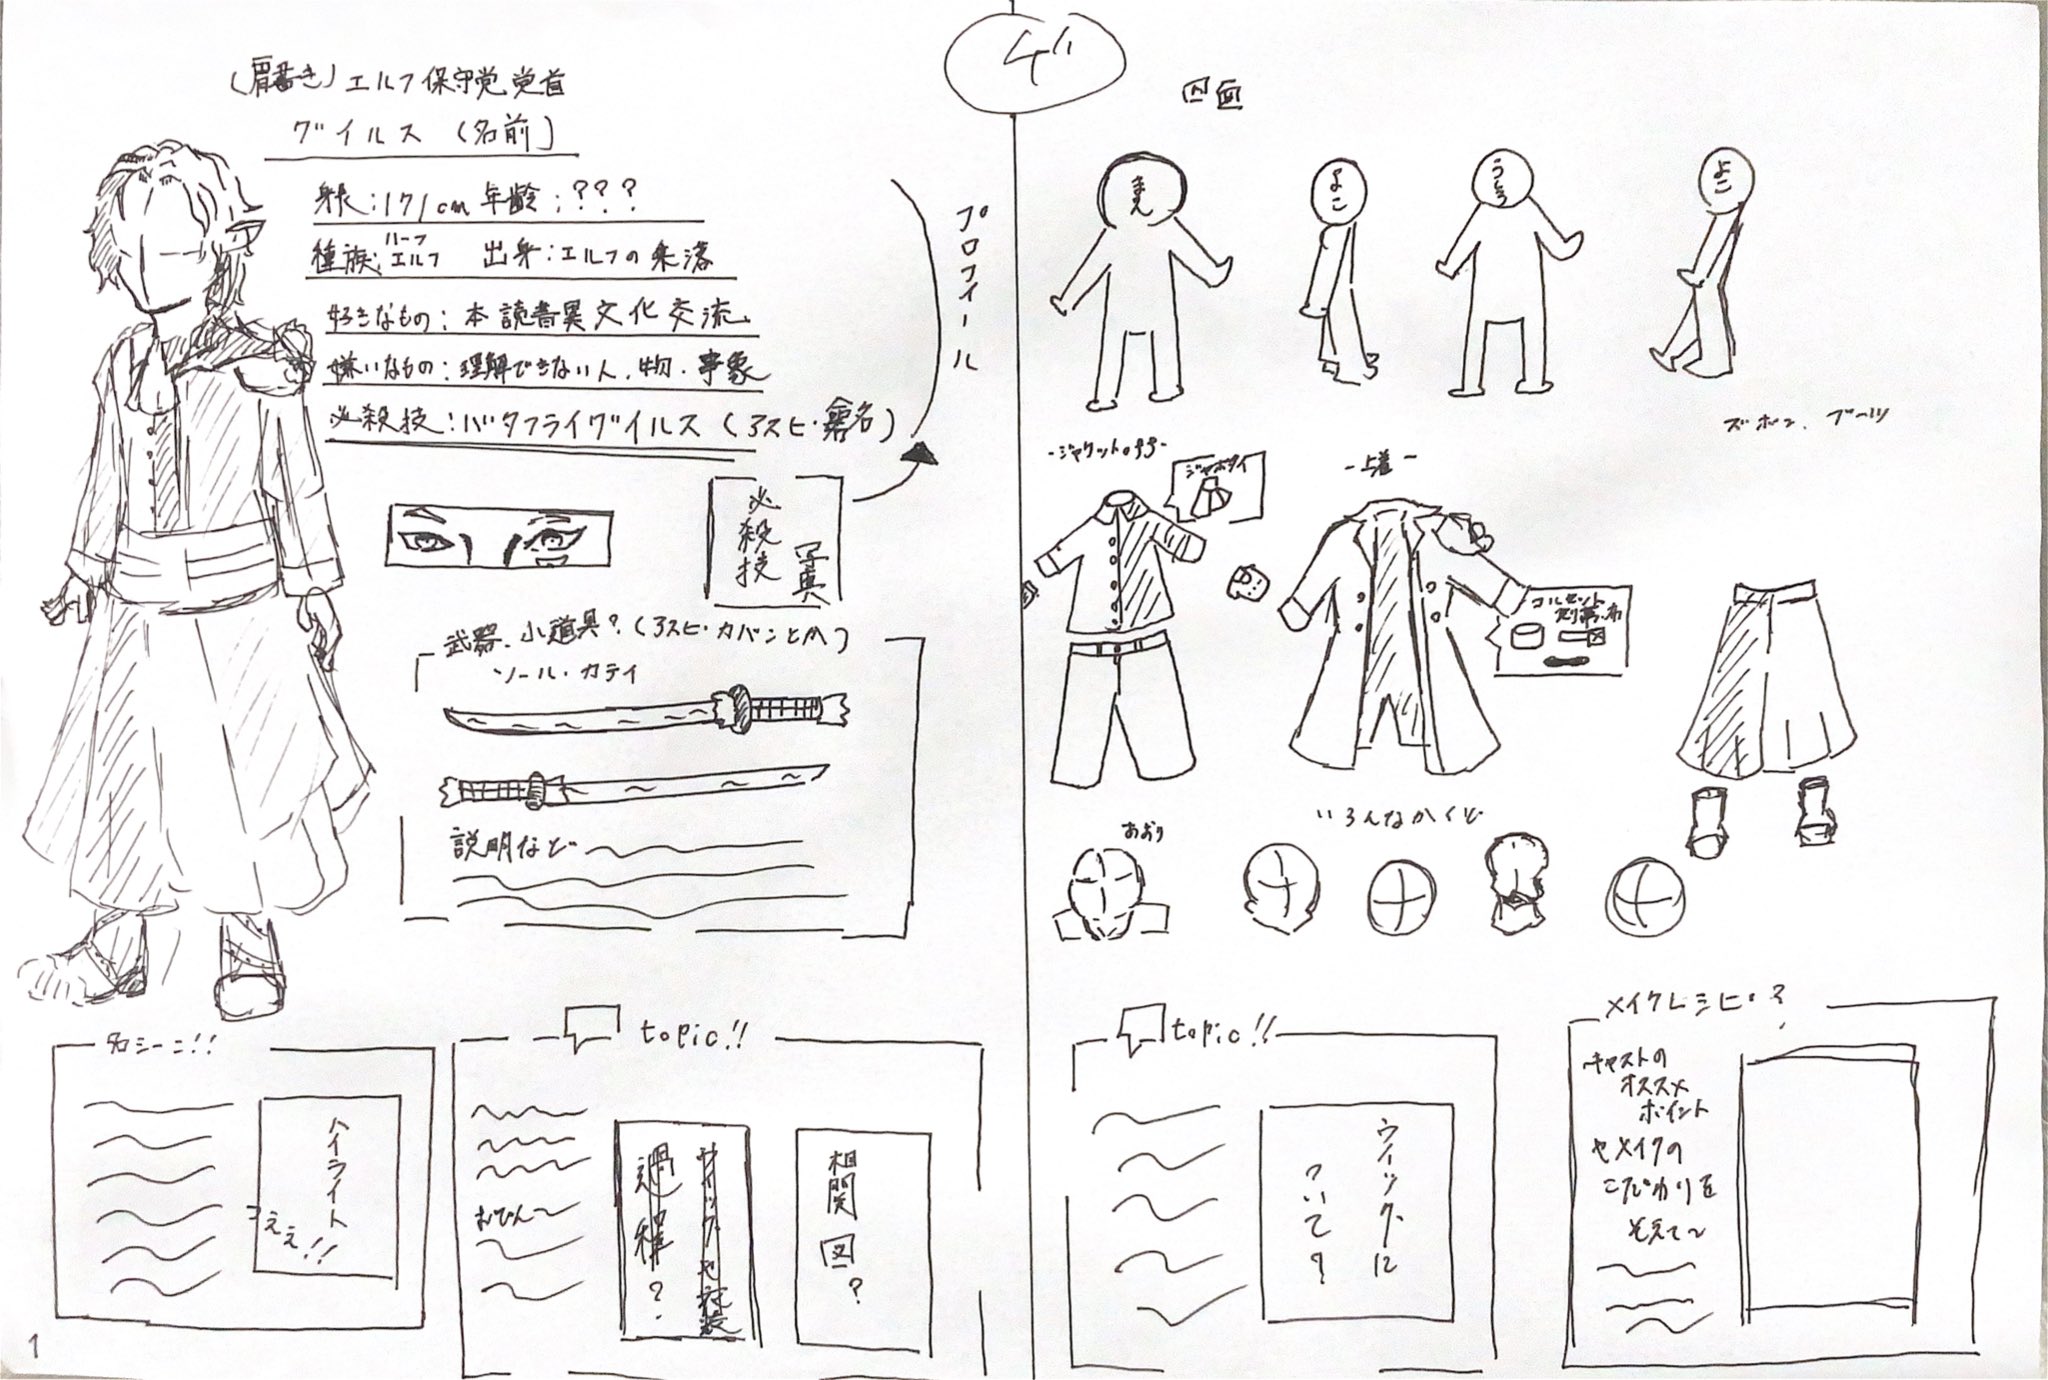 (肩書き) エルフ保守党党首
グイルス (名前)
身長:171cm 年齢:???
種族:ハーフエルフ 出身:エルフの集落
好きなもの:本 読書 異文化交流
嫌いなもの:理解できない人.物.事象
必殺技:バタフライグイルス (アスヒ・命名)
プロフィール
必殺技
写真
武器.小道具?(アスヒ・カバンとか)
ソール・カティ
説明など
名シーン!!
ハイライト
つええ!!
topic!!
過程?
相関図?
1
グ
四面
まえ
よこ
うしろ
よこ
ズボン、ブーツ
-ジャケットoff-
ジャボタイ
-上着-
コルセット
あおり
いろんなかくど
topic!!
ウィッグに
ついて?
メイクレシピ?
キャストの
オススメ
ポイント
やメイクの
こだわりを
そえて~